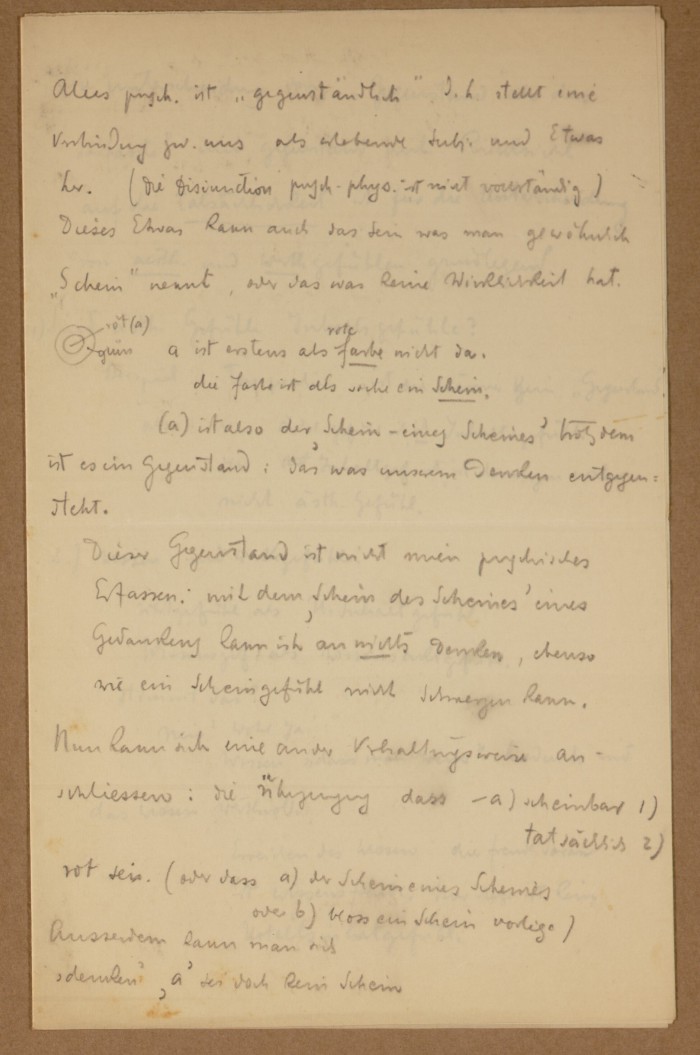 Alles psych. ist „gegenständlich“. D.h. stellt eine
Verbindung zw. uns als erlebende Subj. und Etwas
her. (Die Disiunction psych-phys. ist nicht vollständig)
Dieses Etwas kann auch das sein was man gewöhnlich
„Schein“ nennt, oder das was keine Wirklichkeit hat.
rot (a)
grün
a ist erstens als rote Farbe nicht da.
die Farbe ist als solche ein Schein.
(a) ist also der ‚Schein-eines Scheines’ trotzdem
ist es ein Gegenstand: das was unserem Denken entgegen=
steht.
Dieser Gegenstand ist nicht mein psychisches
Erfassen: mit dem ‚Schein des Scheines’ eines
Gedankens kann ich an nichts denken, ebenso
wie ein Scheingefühl nicht schmerzen kann.
Nun kann sich eine ander Verhaltungsweise an-
schliessen: die Überzeugung dass -a) scheinbar 1)
tatsächlich 2)
rot sein. (oder dass a) der Schein eines Scheines
oder b) bloss ein Schein vorliege)
Ausserdem kann man sich
‚denken’ ‚a’ sei doch kein Schein